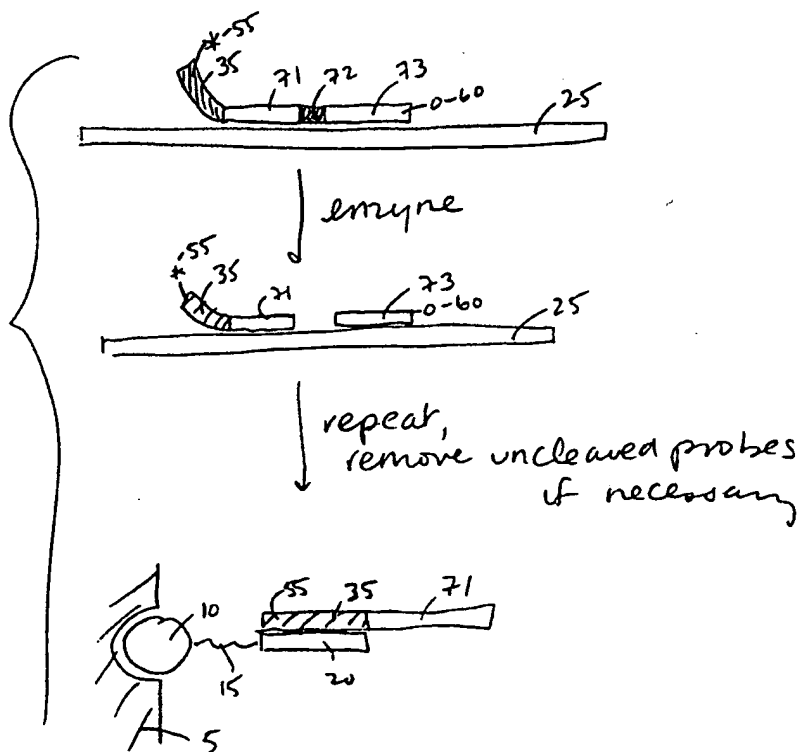 *-55
35
71 72 73
0-60
25
enzyme
*-55
35
71 73
0-60
25
repeat,
remove uncleaved probes
if necessary
10 55 35 71
15 20
5